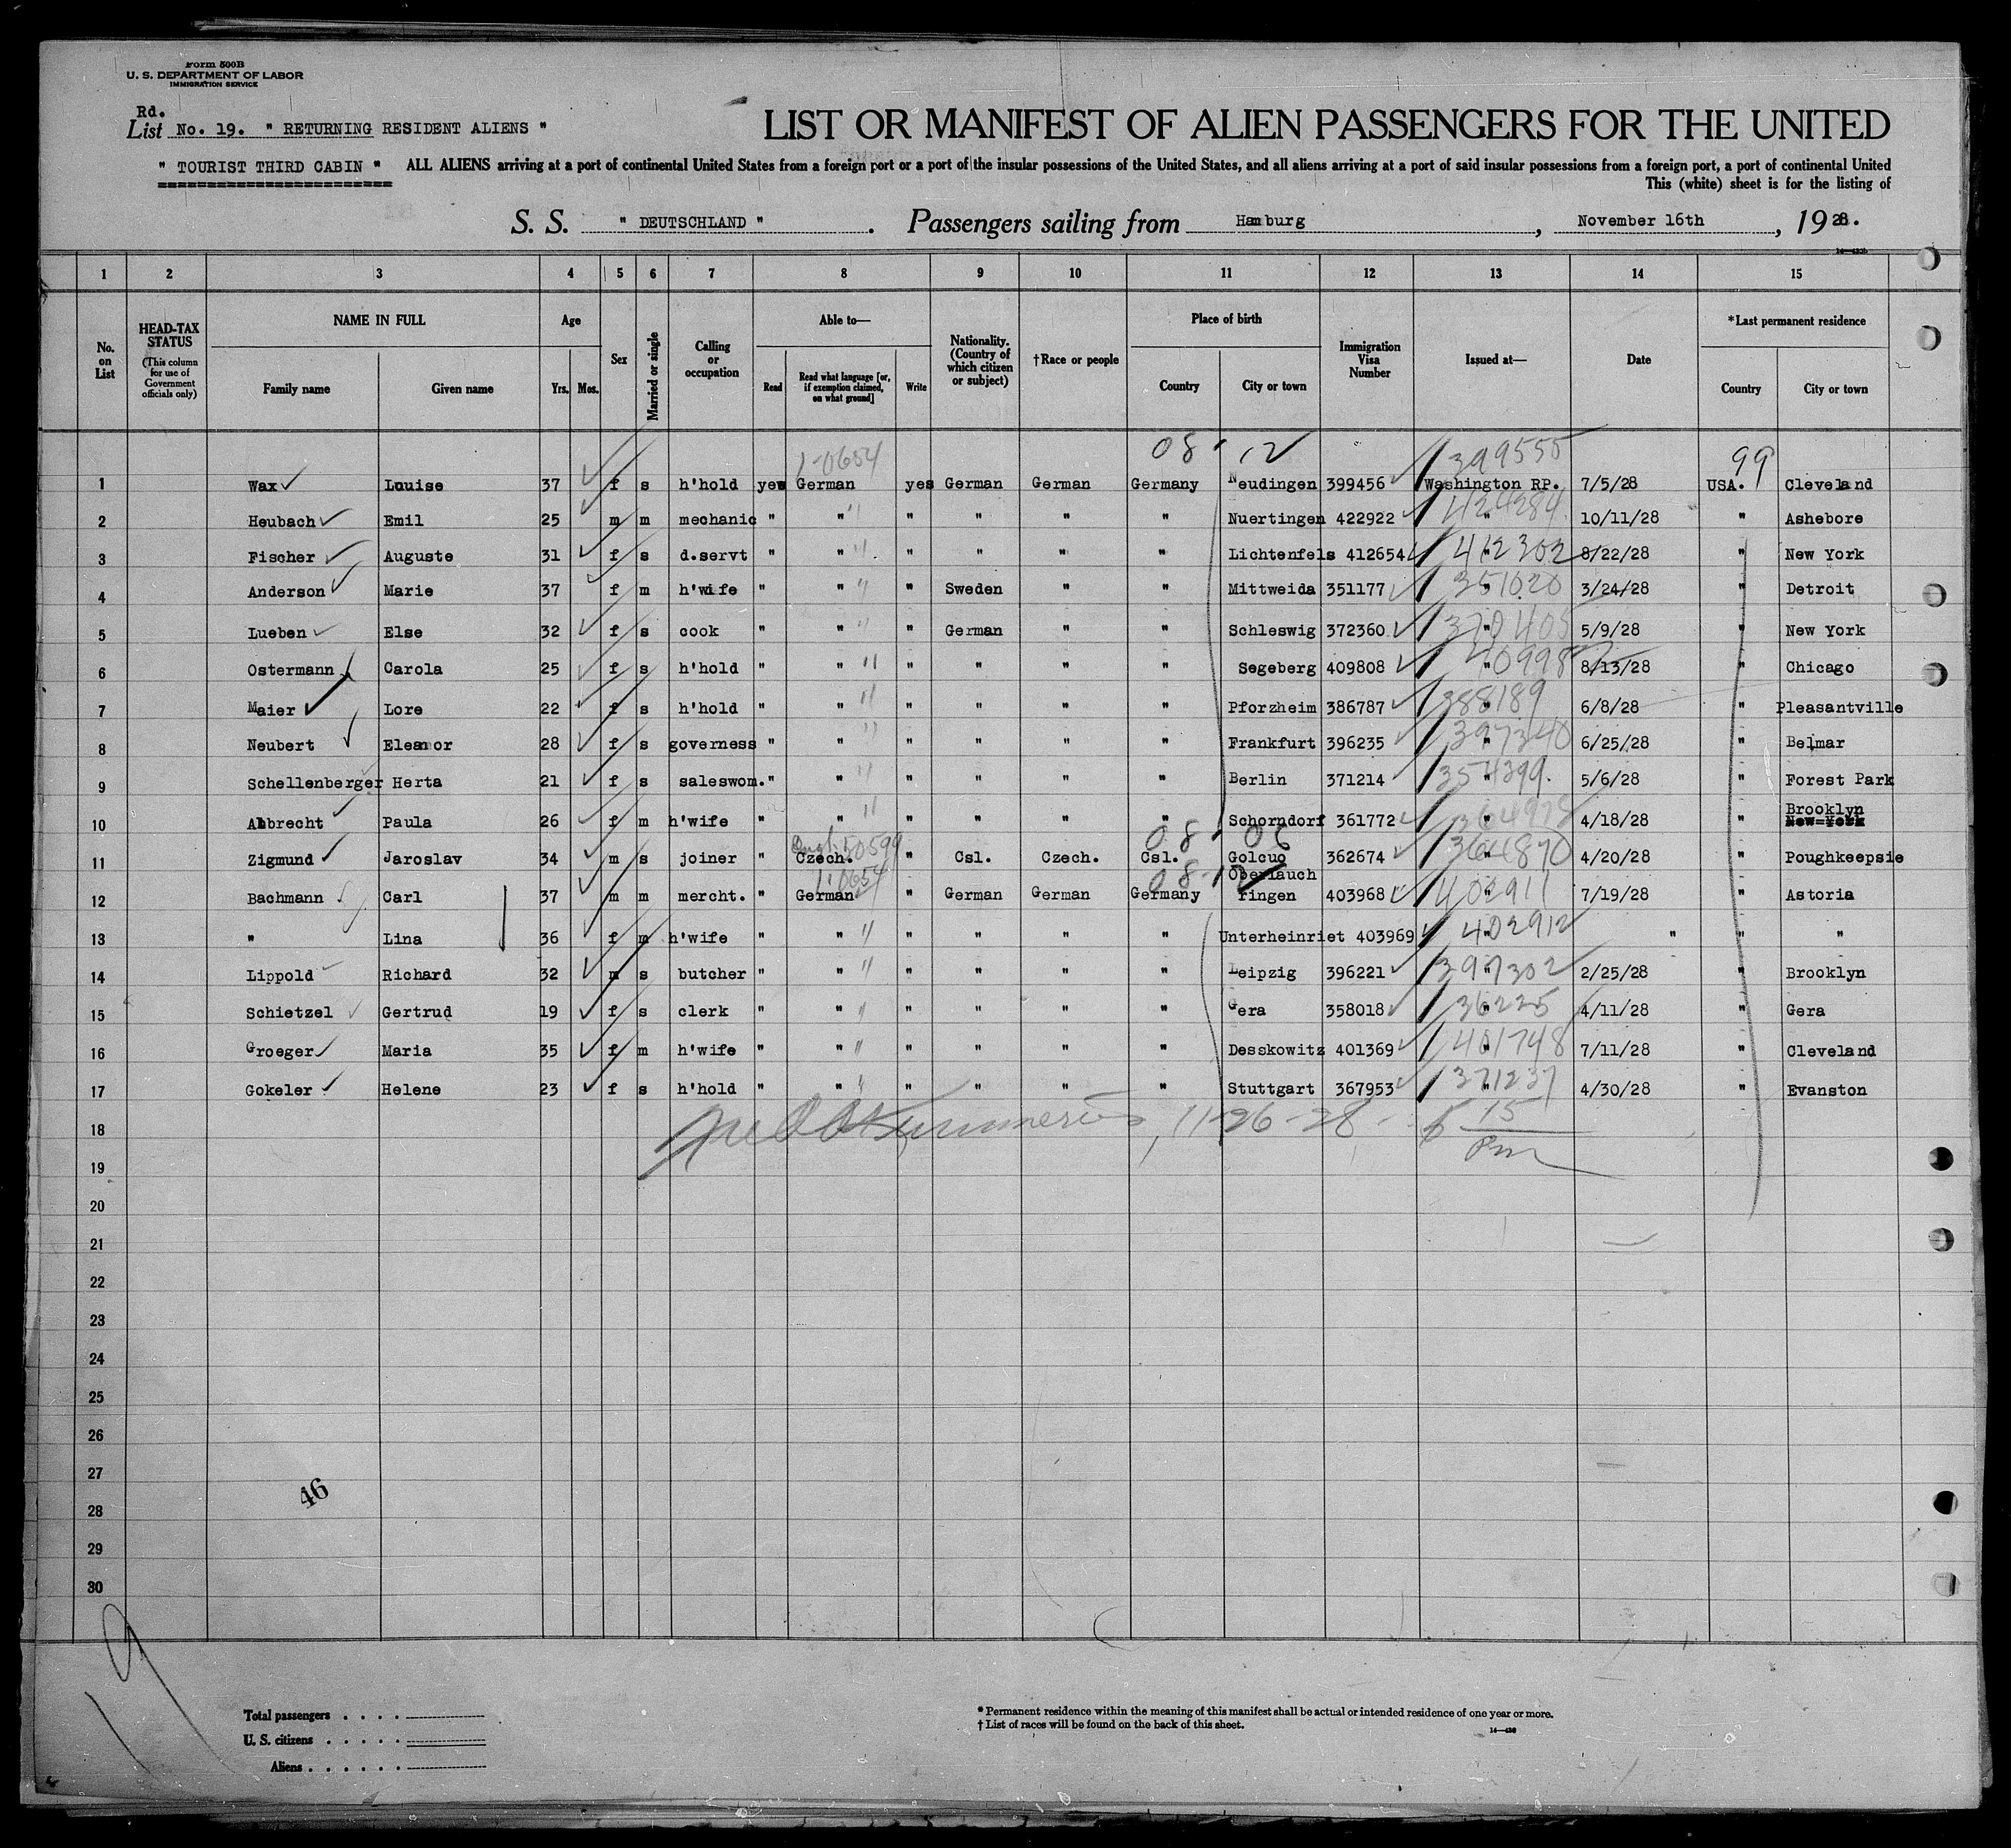 Form 500B
U. S. DEPARTMENT OF LABOR
IMMIGRATION SERVICE
Rd.
List No. 19. " RETURNING RESIDENT ALIENS "
LIST OR MANIFEST OF ALIEN PASSENGERS FOR THE UNITED
" TOURIST THIRD CABIN " ALL ALIENS arriving at a port of continental United States from a foreign port or a port of the insular possessions of the United States, and all aliens arriving at a port of said insular possessions from a foreign port, a port of continental United
This (white) sheet is for the listing of
S. S. " DEUTSCHLAND ". Passengers sailing from Hamburg, November 16th, 1928.
1 2 3 4 5 6 7 8 9 10 11 12 13 14 15
No. on List
HEAD-TAX STATUS
(This column for use of Government officials only)
NAME IN FULL
Family name Given name
Age
Yrs. Mos.
Sex
Married or single
Calling or occupation
Able to—
Read
Read what language [or, if exemption claimed, on what ground]
Write
Nationality. (Country of which citizen or subject)
†Race or people
Place of birth
Country City or town
Immigration Visa Number
Issued at—
Date
*Last permanent residence
Country City or town
1-0654 08-12 399555 99
1 Wax Louise 37 f s h'hold yes German yes German German Germany Neudingen 399456 Washington RP. 7/5/28 USA. Cleveland
2 Heubach Emil 25 m m mechanic " " " " " " Nuertingen 422922 " 424284 10/11/28 " Ashebore
3 Fischer Auguste 31 f s d.servt " " " " " " Lichtenfels 412654 " 412302 8/22/28 " New York
4 Anderson Marie 37 f m h'wife " " " Sweden " " Mittweida 351177 " 351020 3/24/28 " Detroit
5 Lueben Else 32 f s cook " " " German " " Schleswig 372360 " 370405 5/9/28 " New York
6 Ostermann Carola 25 f s h'hold " " " " " " Segeberg 409808 " 8/13/28 " Chicago
7 Maier Lore 22 f s h'hold " " " " " " Pforzheim 386787 " 388189 6/8/28 " Pleasantville
8 Neubert Eleanor 28 f s governess " " " " " " Frankfurt 396235 " 397340 6/25/28 " Belmar
9 Schellenberger Herta 21 f s saleswom. " " " " " " Berlin 371214 " 354399. 5/6/28 " Forest Park
10 Albrecht Paula 26 f m h'wife " " " " " " Schorndorf 361772 " 364978 4/18/28 " Brooklyn
New York
Engl. 50599 08-06
11 Zigmund Jaroslav 34 m s joiner " Czech. " Csl. Czech. Csl. Golcuo 362674 " 364870 4/20/28 " Poughkeepsie
1-0654 08-12 Oberlauch
12 Bachmann Carl 37 m m mercht. " German " German German Germany fingen 403968 402911 7/19/28 " Astoria
13 " Lina 36 f m h'wife " " " " " " Unterheinriet 403969 " 402912 " " "
14 Lippold Richard 32 m s butcher " " " " " " Leipzig 396221 " 397302 2/25/28 " Brooklyn
15 Schietzel Gertrud 19 f s clerk " " " " " " Gera 358018 " 36225 4/11/28 " Gera
16 Groeger Maria 35 f m h'wife " " " " " " Desskowitz 401369 " 401748 7/11/28 " Cleveland
17 Gokeler Helene 23 f s h'hold " " " " " " Stuttgart 367953 " 371237 4/30/28 " Evanston
18 11-26-28 15
19 Pm
20
21
22
23
24
25
26
27
46
28
29
30
19
Total passengers . . . .
U. S. citizens . . . . .
Aliens . . . . . .
* Permanent residence within the meaning of this manifest shall be actual or intended residence of one year or more.
† List of races will be found on the back of this sheet.